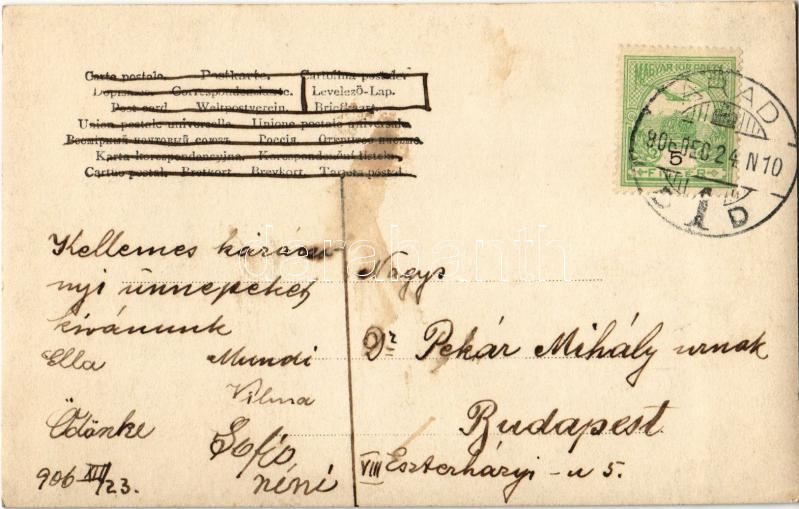 Carte postale. Postkarte. Cartolina postale.
Dopisnice. Correspondenzkarte. Levelező-Lap.
Post card. Weltpostverein. Briefkaart.
Union postale universelle. Unione postale universale.
Всемірный почтовый союзъ. Россія. Открытое письмо.
Karta korespondencyjna. Korespondenční lístek.
Cartuo postal. Brefkort. Brevkort. Tarjeta postal.
MAGYAR KIR. POSTA
5
FILLER
ARAD
906 DEC 24 N10
D
Kellemes karácso-
nyi ünnepeket
kivánunk
Ella Mundi
Vilma
Ödönke Sofio
néni
906 XII/23.
Nagys
Dr Pekár Mihály urnak
Budapest
VIII Eszterházi-u 5.
darabanth